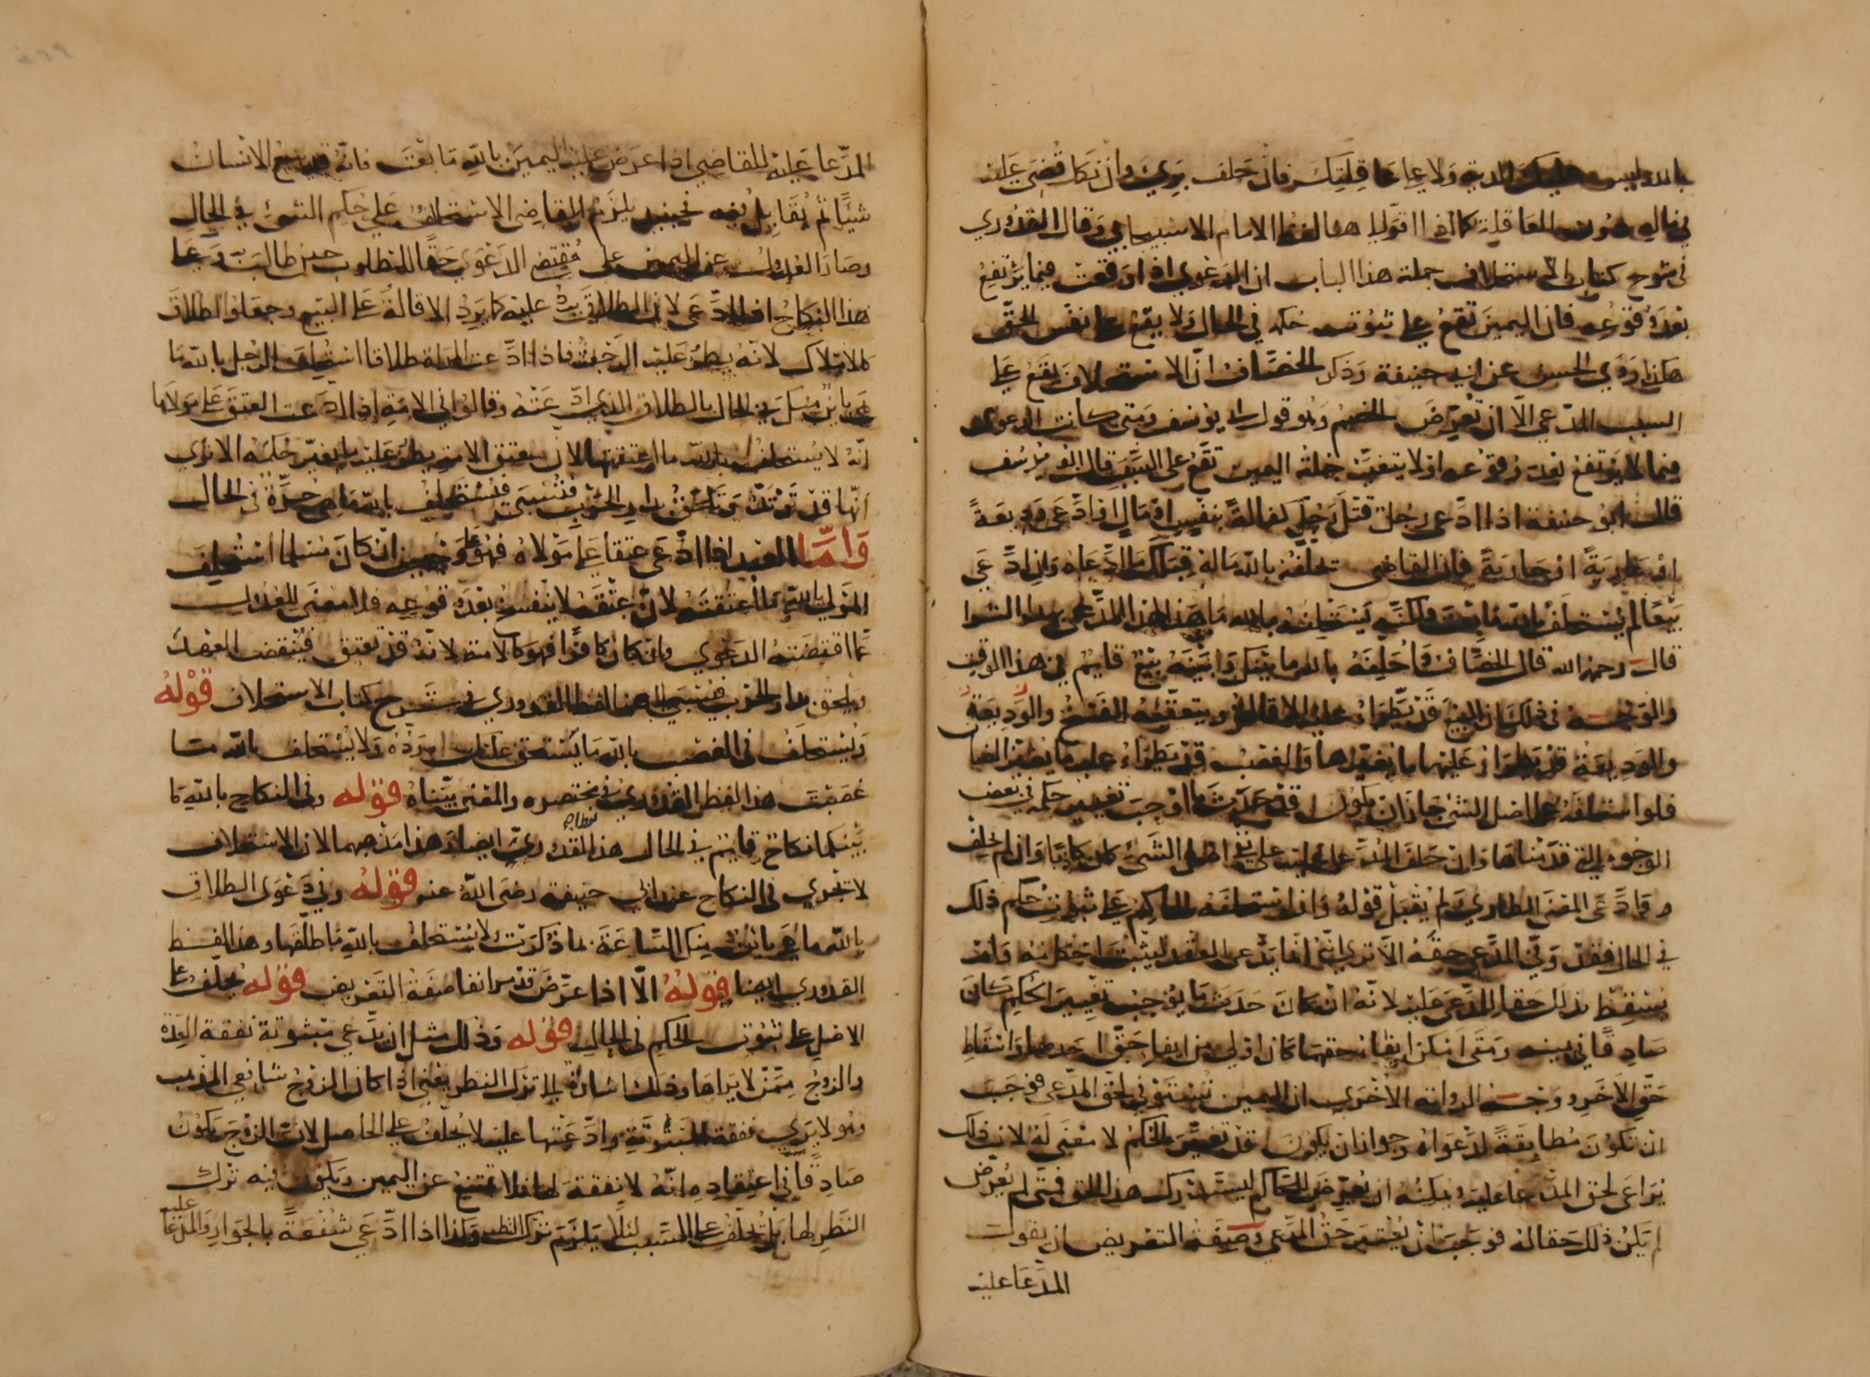 بالله ليس عليك الدية ولا على عاقلتك فان حلف بري وان نكل قضي عليه
في ماله دون العاقلة كما في اقتوله هذا لفظ الامام الاسبيجابي وقال القدوري
في شرح كتاب الاستحلاف جملة هذا الباب ان الدعوي اذا وقعت فيما يرتفع
بعد وقوعه فان اليمين تقع علي ثبوت حكمه في الحال ولا يقع علي نفس الحق
هكذا روي الحسن عن ابي حنيفة وذكر الخصاف ان الاستحلاف يقع علي
السبب المدعي الا ان يعرض الخصم وهو قول ابي يوسف ومتي كانت الدعوي
فيما لا يرتفع بعد وقوعه او لا يتغير حكمه اليمين تقع علي السبب قال ابو يوسف
قال ابو حنيفة اذا ادعي رجل قتل رجل كفالة بنفس او مال او ادعي وديعة
او عارية او جارية فان القاضي يحلفه بالله ماله قبلك ما ادعاه وان ادعي
بيعا لم يستحلف بالله ما بعت ولكنه يستحلفه بالله ما هذا لهذا المدعي بهذا الشرا
قال رحمه الله قال الخصاف واحلفه بالله ما بينك وبينه بيع قايم في هذا الوقت
والوجه في ذلك ان البيع قد يطراء عليه الاقالة ويتعقبه الفسخ والوديعة
والوديعة قد يطراء عليها ما يغيرها والغصب قد يطراء عليه ما يغير الضما
فلو استحلفه علي اصل الشئ جاز ان يكون قد حدث ما اوجب تغيير حكمه في بعض
الوجوه التي قدمناها وان حلف المدعا عليه علي نفي اصل الشئ كان كاذبا وان لم يحلف
وادعي المعني الطاري لم يقبل قوله واذا استحلفه الحاكم علي ثبوت حكم ذلك
في الحال فقد وفي المدعي حقه الا تري انه انما يدعي العقد ليثبت احكامه ولم
يسقط بذلك حق المدعي عليه لانه ان كان حدث ما يوجب تغيير الحكم كان
صادقا في يمينه ومتي امكن ايفا حقهما كان اولي من ايفا حق احدهما واسقاط
حق الاخر ووجه الرواية الاخري ان اليمين تستوفي لحق المدعي فوجب
ان تكون مطابقة لدعواه وجواز ان يكون قد تغير الحكم لا معني له لان ذلك
يراعي لحق المدعا عليه ويمكنه ان يعرض للحاكم ليستدرك هذا الحق فمتي لم يعرض
لم يكن ذلك حقا له فوجب ان يعتبر حق المدعي وصفة التعريض ان يقول
المدعا عليه
المدعا عليه للقاضي اذا عرض عليه اليمين بالله ما بعت فانه قد يبيع الانسان
شيئا ثم يقايل فيه فحينيذ يلزم القاضي الاستحلاف علي حكم الشئ في الحال
وصار العدول عن اليمين علي مقتضي الدعوي حقا للمطلوب حين طالب به وعلي
هذا النكاح اذا ادعي لان الطلاق يرد عليه كما يرد الاقالة علي البيع وجعلوا الطلاق
كالاملاك لانه يطرء عليه الرجعة فاذا ادعت المراة طلاقا استحلف الرجل بالله ما
هي باين منك في الحال بالطلاق الذي ادعته وقالوا في الامة اذا ادعت العتق علي مولاها
انه لا يستحلف بالله ما اعتقتها لان عتق الامة يطرء عليه ما يغير حكمه الا تري
انها قد ترتد وتلحق بدار الحرب فتسبى فيستحلف بالله ما هي حرة في الحال
واما العبد اذا ادعي عتقا علي مولاه فهو علي وجهين ان كان مسلما استحلف
المولي بالله ما اعتقته لان عتقه لا ينفسخ بعد وقوعه فلا معني للعدول
عما اقتضته الدعوي وان كان كافرا فهو كالامة لانه قد يعتق فينقض العهد
ويلحق بدار الحرب فيسبى الي هنا لفظ القدوري في شرح كتاب الاستحلاف قوله
ويستحلف في الغصب بالله ما يستحق عليك رده ولا يستحلف بالله ما
غصبت هذا لفظ القدوري في مختصره والمعني بيناه قوله وفي النكاح بالله ما
بينكما نكاح قايم في الحال هذا لفظ القدوري ايضا وهذا مذهبهما لان الاستحلاف
لا تجري في النكاح عند ابي حنيفة رضي الله عنه قوله وفي دعوي الطلاق
بالله ما هي باين منك الساعة بما ذكرت ولا يستحلف بالله ما طلقها وهذا لفظ
القدوري ايضا قوله الا اذا عرض قد مر انفا صفة التعريض قوله يحلف علي
الاصل علي ثبوت الحكم في الحال قوله وذلك مثل ان تدعي مبتوتة نفقة العدة
والزوج ممن لا يراها وذلك اشارة الي ترك النظر يعني اذا كان الزوج شافعي المذهب
وهو لا يري نفقة المبتوتة وادعتها عليه لا يحلف علي الحاصل لان الزوج يكون
صادقا في اعتقاده انه لا نفقة لها فلا تمتنع عن اليمين ويكون فيه ترك
النظر لها بل يحلف علي السبب لئلا يلزم ترك النظر وكذا اذا ادعي شفعة بالجوار والمدعا عليه